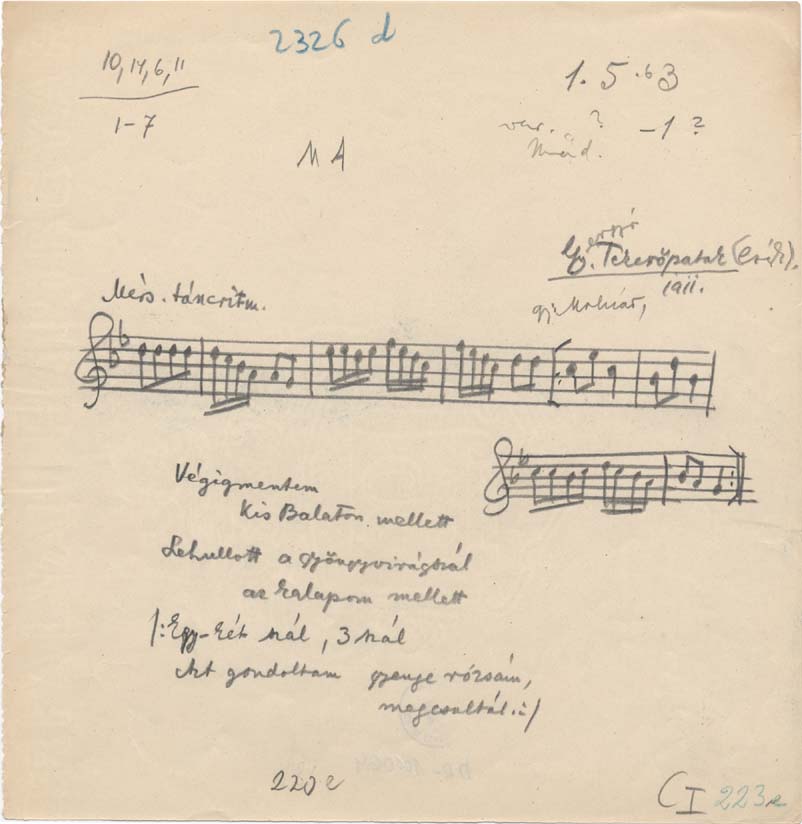 2326 d
10, 14, 6, 11
1-7
1. 5. 6 3
var. ? -1 ?
M A
Tekerőpatak
1911.
gy. Molnár,
Mérs. táncritm.
Végigmentem
Kis Balaton mellett
Lehullott a gyöngyvirágszál
az kalapom mellett
/: Egy-két szál, 3 szál
Azt gondoltam gyenge rózsám,
megcsaltál. :/
C I 223e